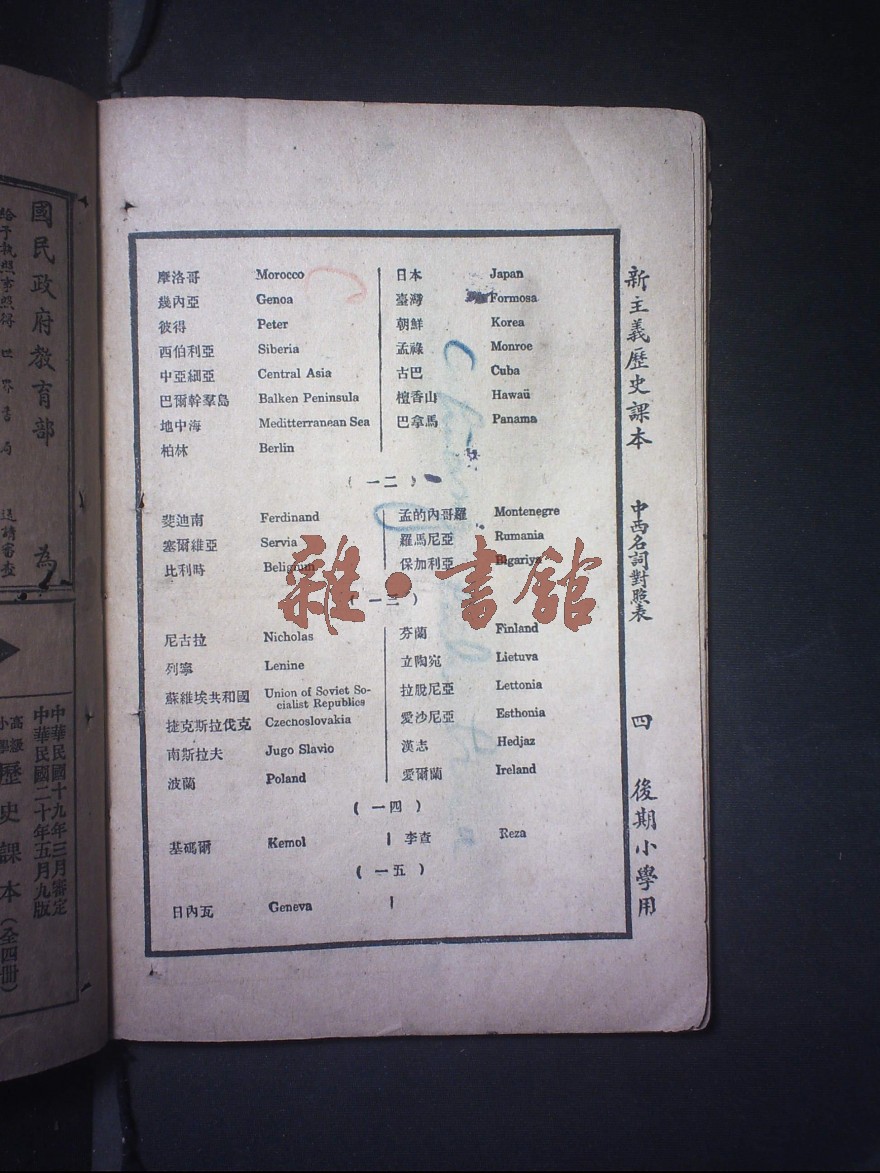 摩洛哥 Morocco
幾內亞 Genoa
彼得 Peter
西伯利亞 Siberia
中亞細亞 Central Asia
巴爾幹羣島 Balken Peninsula
地中海 Meditterranean Sea
柏林 Berlin
日本 Japan
臺灣 Formosa
朝鮮 Korea
孟祿 Monroe
古巴 Cuba
檀香山 Hawaii
巴拿馬 Panama
(一二)
斐迪南 Ferdinand
塞爾維亞 Servia
比利時 Beligium
孟的內哥羅 Montenegre
羅馬尼亞 Rumania
保加利亞 Bigariya
(一三)
尼古拉 Nicholas
列寧 Lenine
蘇維埃共和國 Union of Soviet So-
cialist Republics
捷克斯拉伐克 Czecnoslovakia
南斯拉夫 Jugo Slavio
波蘭 Poland
芬蘭 Finland
立陶宛 Lietuva
拉脫尼亞 Lettonia
愛沙尼亞 Esthonia
漢志 Hedjaz
愛爾蘭 Ireland
(一四)
基碼爾 Kemol
李查 Reza
(一五)
日內瓦 Geneva
新主義歷史課本 中西名詞對照表 四 後期小學用
雜·書館
國民政府教育部 為
給予執照事照得世界書局 送請審查
中華民國十九年三月審定
中華民國二十年五月九版
高級
小學
歷史課本(全四冊)